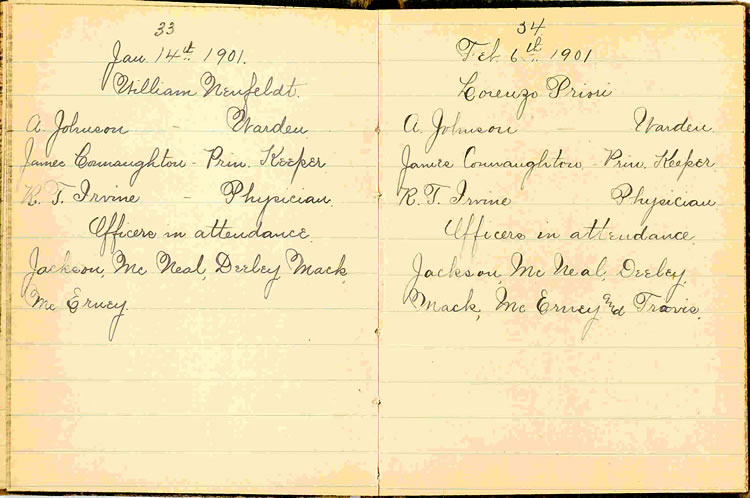 33
Jan 14th 1901.
William Neufeldt.
A. Johnson - Warden
James Connaughton - Prin. Keeper
R. T. Irvine - Physician.
Officers in attendance.
Jackson, Mc Neal, Deeley, Mack,
Mc Erney.
34
Feb. 6th 1901
Lorenzo Priori
A. Johnson Warden.
James Connaughton - Prin. Keeper.
R. T. Irvine Physician.
Officers in attendance.
Jackson, Mc Neal, Deeley,
Mack, Mc Erney and Travis.